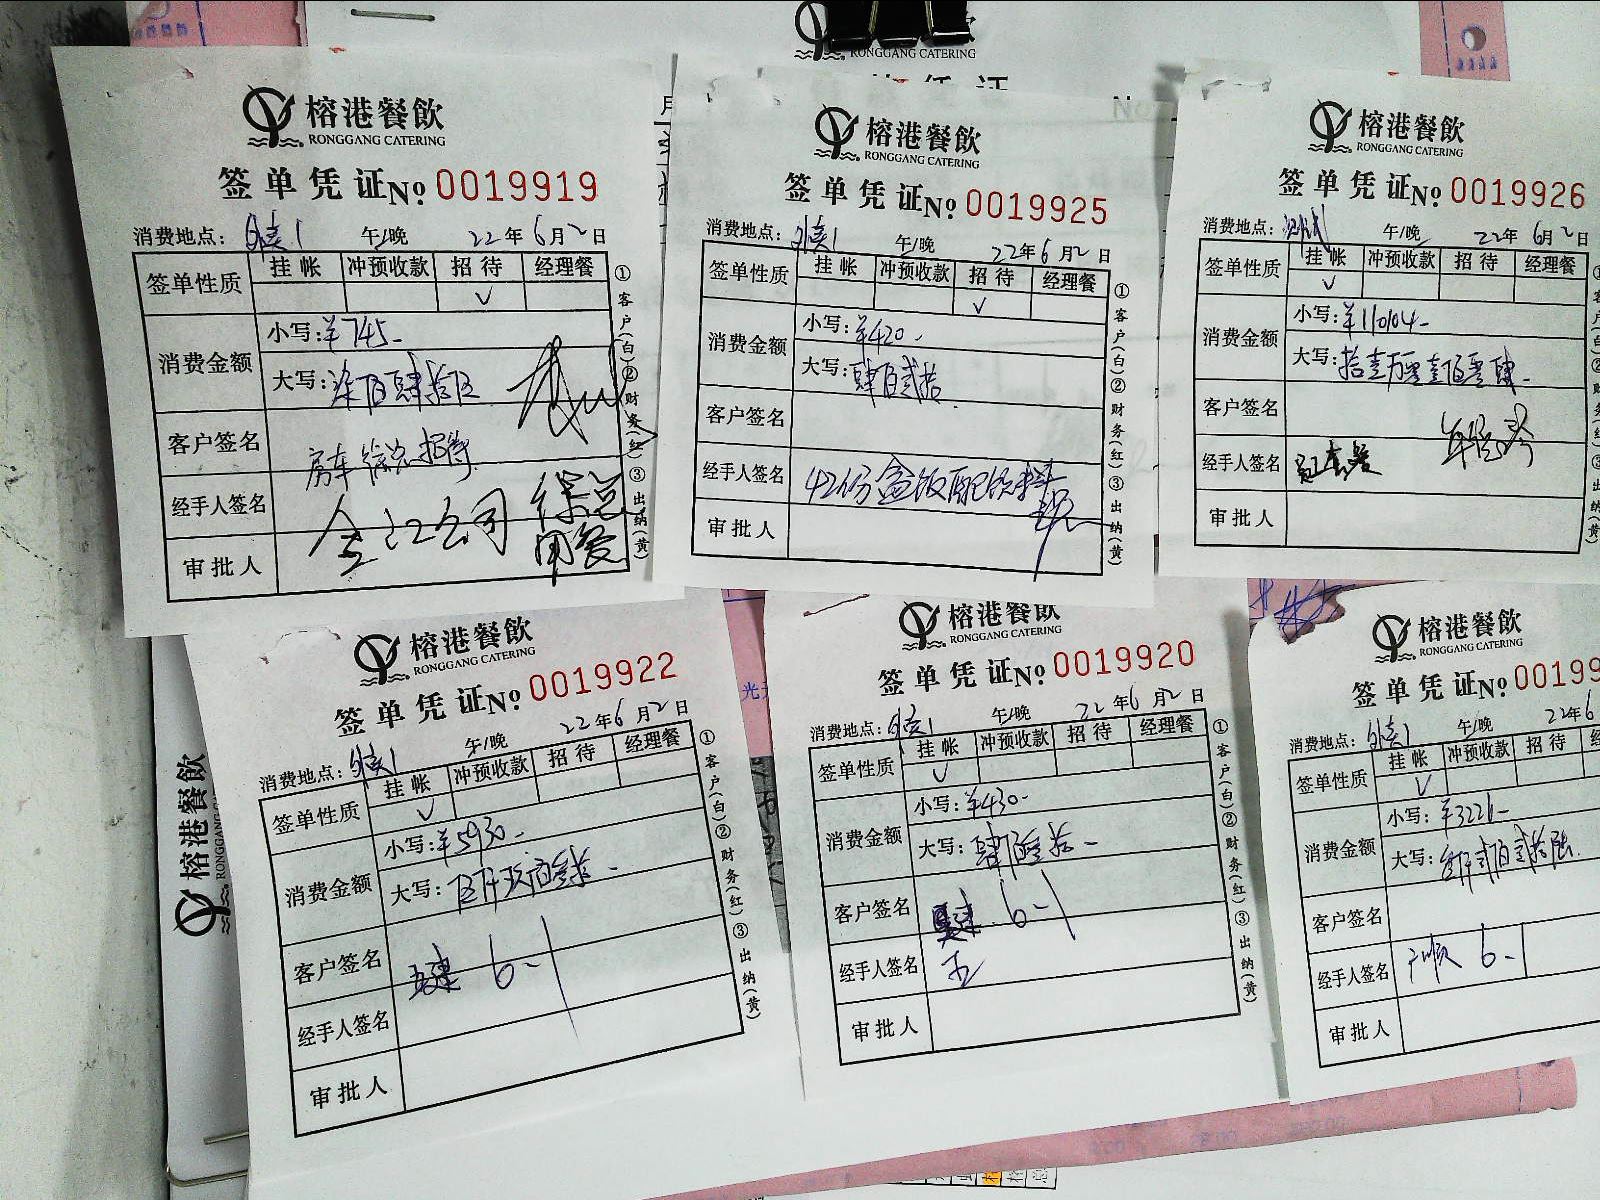 RONGGANG CATERING
榕港餐飲
RONGGANG CATERING
签单凭证No. 0019919
消费地点: 午/晚 22年6月2日
签单性质 挂帐 冲预收款 招待 经理餐
√
消费金额 小写:¥745-
大写:柒佰肆拾伍
客户签名 房车徐总招待
经手人签名 全江公司 徐总
审批人 用餐
①客户(白)②财务(红)③出纳(黄)
榕港餐飲
RONGGANG CATERING
签单凭证No. 0019925
消费地点: 午/晚 22年6月2日
签单性质 挂帐 冲预收款 招待 经理餐
√
消费金额 小写:¥420-
大写:肆百贰拾
客户签名
经手人签名 42份盒饭配饮料
审批人
①客户(白)②财务(红)③出纳(黄)
榕港餐飲
RONGGANG CATERING
签单凭证No. 0019926
消费地点: 午/晚 22年6月2日
签单性质 挂帐 冲预收款 招待 经理餐
√
消费金额 小写:¥110104-
大写:拾壹万零壹佰零肆-
客户签名
经手人签名
审批人
榕港餐飲
RONGGANG CATERING
签单凭证No. 0019922
消费地点: 午/晚 22年6月2日
签单性质 挂帐 冲预收款 招待 经理餐
√
消费金额 小写:¥5930-
大写:伍仟玖佰叁拾-
客户签名 6-1
经手人签名
审批人
①客户(白)②财务(红)③出纳(黄)
榕港餐飲
RONGGANG CATERING
签单凭证No. 0019920
消费地点: 午/晚 22年6月2日
签单性质 挂帐 冲预收款 招待 经理餐
√
消费金额 小写:¥430-
大写:肆佰叁拾-
客户签名 6-1
经手人签名
审批人
①客户(白)②财务(红)③出纳(黄)
榕港餐飲
RONGGANG CATERING
签单凭证No. 00199
消费地点: 午/晚 22年6
签单性质 挂帐 冲预收款 招待 经
√
消费金额 小写:¥3226-
大写:叁仟贰佰贰拾陆
客户签名
经手人签名 6-1
审批人
榕港餐飲
RONGGANG